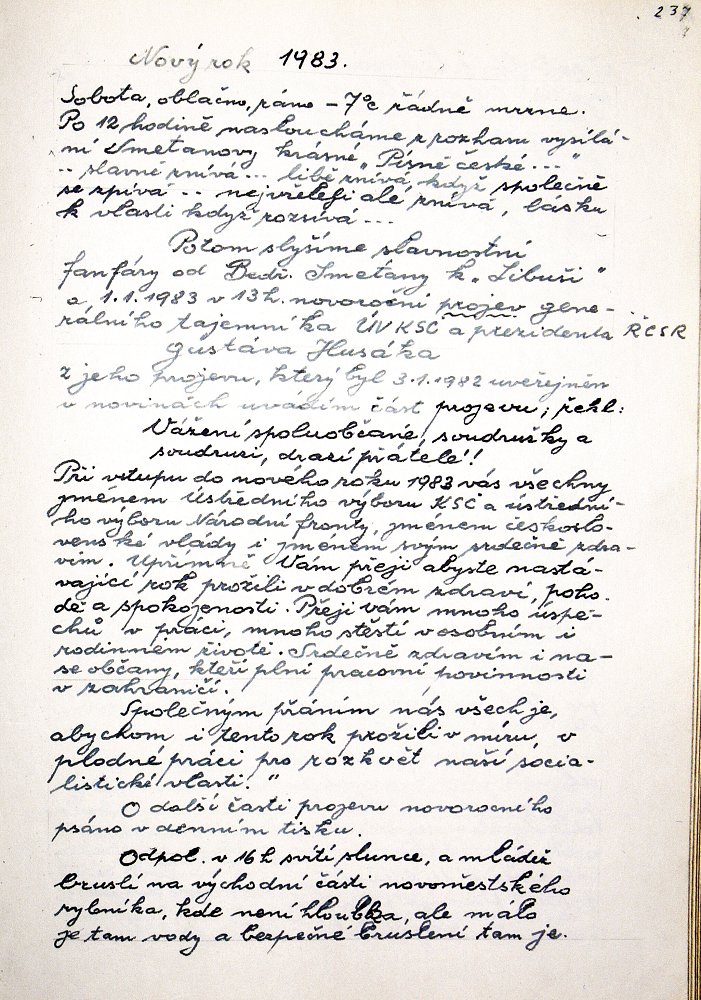 237
Nový rok 1983.
Sobota, oblačno, ráno - 7°c řádně mrzne.
Po 12 hodině nasloucháme z rozhasu vysílá-
ní Smetanovy krásné „Písně české...“
.. slavně znívá... libě znívá, když společně
se zpívá .. nejvřeleji ale znívá, lásku
k vlasti když rozsívá ...
Potom slyšíme slavnostní
fanfáry od Bedř. Smetany k „Libuši“
a 1.1.1983 v 13 h. novoroční projev gene-
rálního tajemníka ÚV KSČ a prezidenta ŘČSR
Gustáva Husáka
z jeho projevu, který byl 3.1.1982 uveřejněn
v novinách uvádím část projevu; řekl:
Vážení spoluobčané, soudružky a
soudruzi, drazí přátelé!!
Při vstupu do nového roku 1983 vás všechny
jménem Ústředního výboru KSČ a ústřední-
ho výboru Národní fronty, jménem českoslo-
venské vlády i jménem svým srdečně zdra-
vím. Upřímně Vám přeji abyste nastá-
vající rok prožili v dobrém zdraví, poho-
dě a spokojenosti. Přeji vám mnoho úspě-
chů v práci, mnoho štěstí v osobním i
rodinném životě. Srdečně zdravím i na-
še občany, kteří plní pracovní povinnosti
v zahraničí.
Společným přáním nás všech je,
abychom i tento rok prožili v míru, v
plodné práci pro rozkvět naší socia-
listické vlasti."
O další části projevu novoročního
psáno v denním tisku.
Odpol. v 16 h svítí slunce, a mládež
bruslí na východní části novoměstského
rybníka, kde není hloubka, ale málo
je tam vody a bezpečné bruslení tam je.